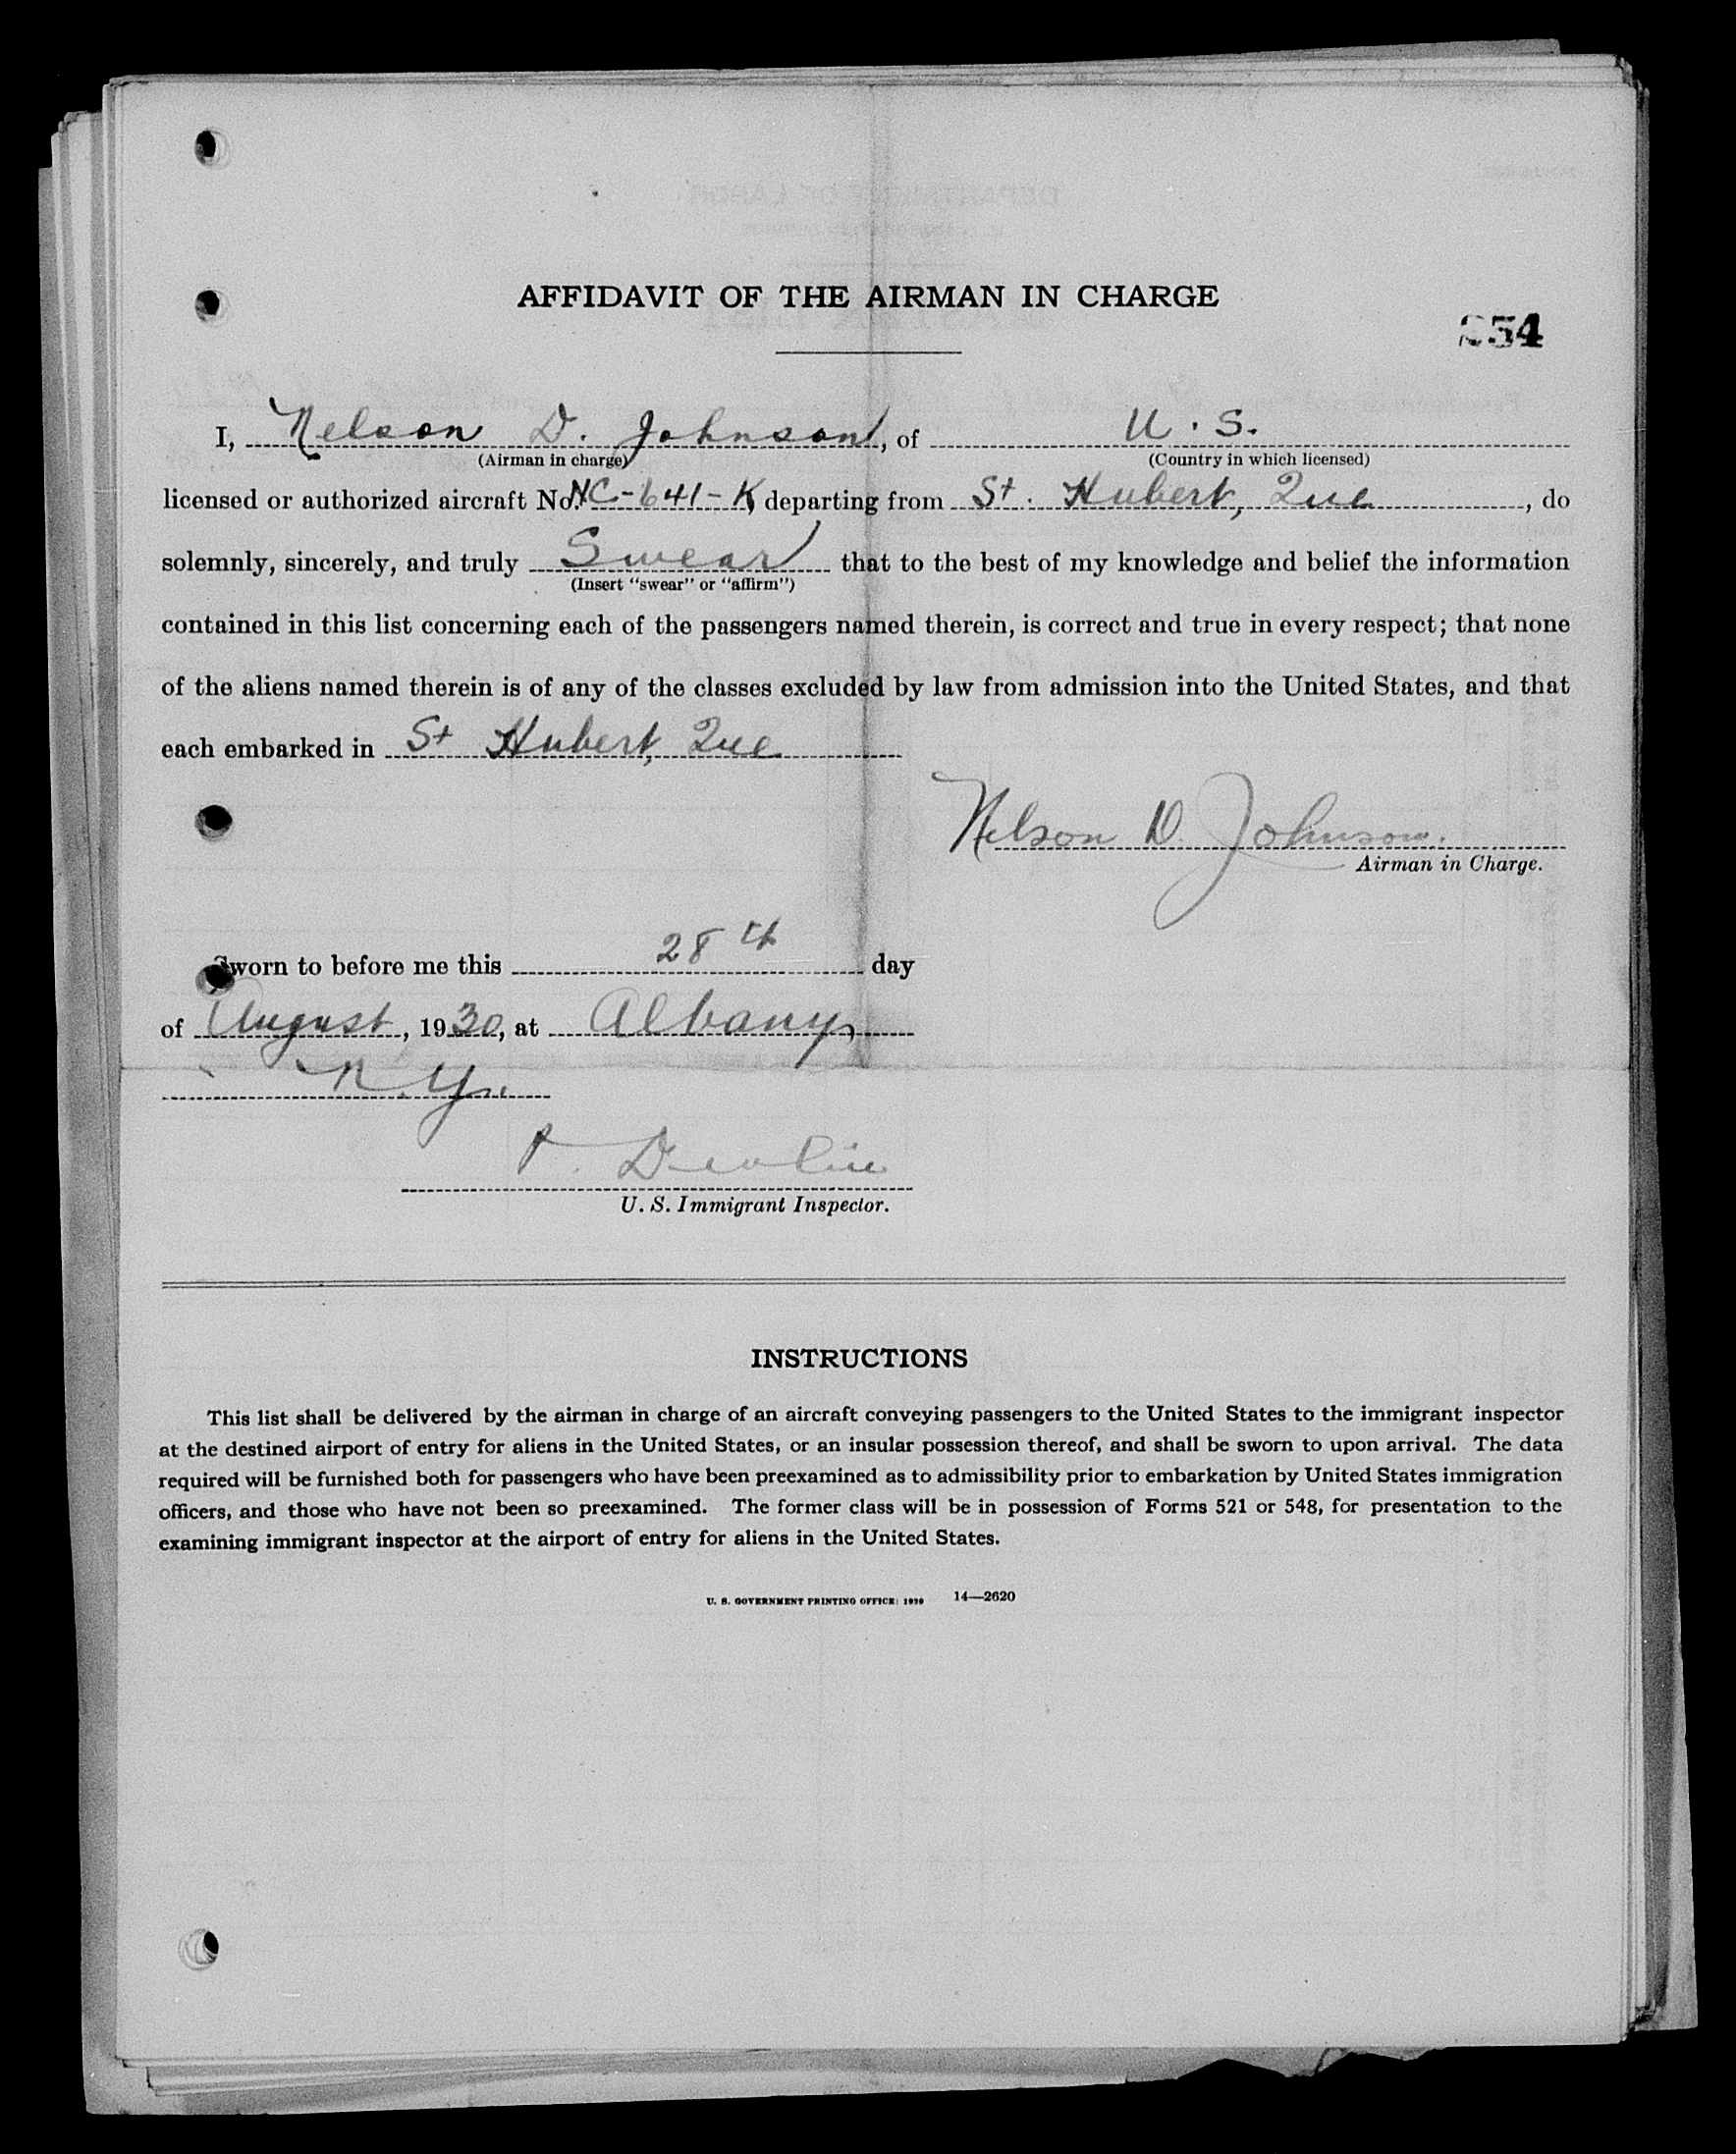 AFFIDAVIT OF THE AIRMAN IN CHARGE
254
I, Nelson D. Johnson, of U. S.
(Airman in charge) (Country in which licensed)
licensed or authorized aircraft No. NC-641-K, departing from St. Hubert, Que, do
solemnly, sincerely, and truly Swear that to the best of my knowledge and belief the information
(Insert "swear" or "affirm")
contained in this list concerning each of the passengers named therein, is correct and true in every respect; that none
of the aliens named therein is of any of the classes excluded by law from admission into the United States, and that
each embarked in St Hubert, Que
Nelson D. Johnson.
Airman in Charge.
Sworn to before me this 28th day
of August, 1930, at Albany,
N.Y.
P. Devlin
U. S. Immigrant Inspector.
INSTRUCTIONS
This list shall be delivered by the airman in charge of an aircraft conveying passengers to the United States to the immigrant inspector
at the destined airport of entry for aliens in the United States, or an insular possession thereof, and shall be sworn to upon arrival. The data
required will be furnished both for passengers who have been preexamined as to admissibility prior to embarkation by United States immigration
officers, and those who have not been so preexamined. The former class will be in possession of Forms 521 or 548, for presentation to the
examining immigrant inspector at the airport of entry for aliens in the United States.
U. S. GOVERNMENT PRINTING OFFICE: 14—2620